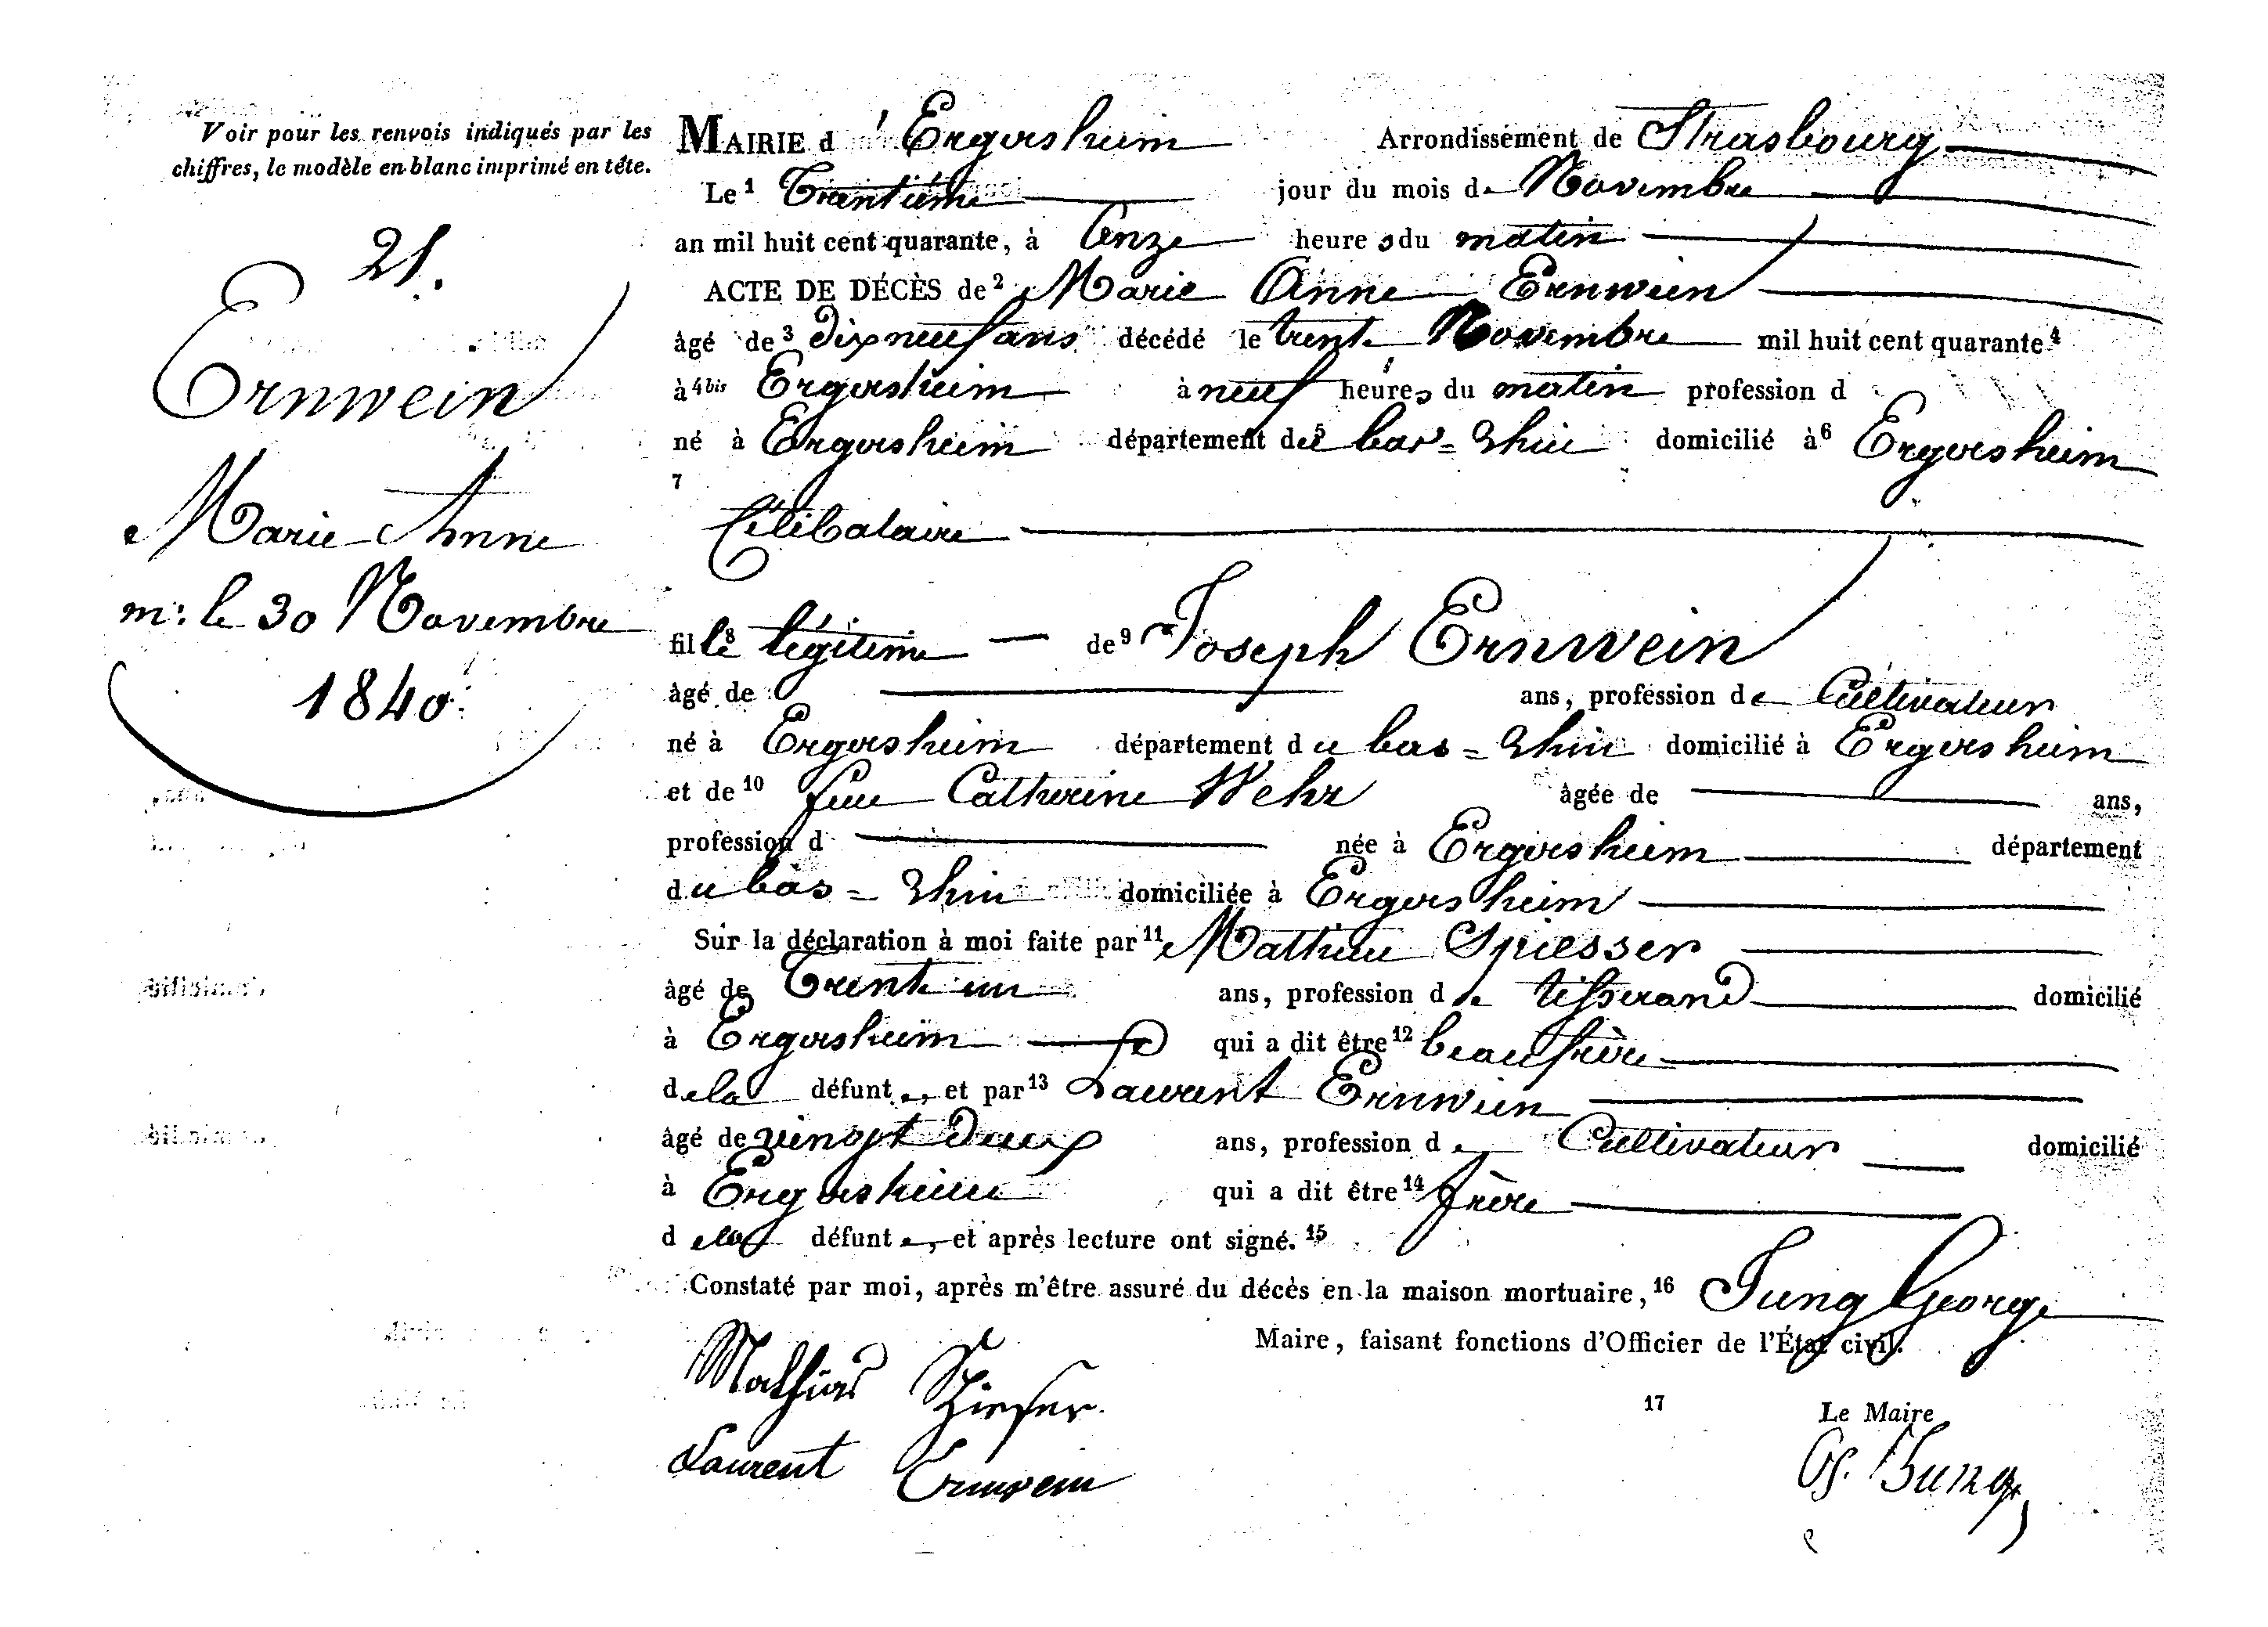 Voir pour les renvois indiqués par les
chiffres, le modèle en blanc imprimé en tête.
21.
Ernwein
Marie Anne
m: le 30 Novembre
1840.
MAIRIE d'Ergersheim Arrondissement de Strasbourg
Le 1 Trentième jour du mois de Novembre
an mil huit cent quarante, à Onze heures du matin
ACTE DE DÉCÈS de 2 Marie Anne Ernwein
âgé de 3 dix neuf ans décédé le trente Novembre mil huit cent quarante 4
à 4 bis Ergersheim à neuf heures du matin profession d
né à Ergersheim département du 5 bas-Rhin domicilié à 6 Ergersheim
7
Célibataire
fille 8 légitime de 9 Joseph Ernwein
âgé de ans, profession de Cultivateur
né à Ergersheim département du bas=Rhin domicilié à Ergersheim
et de 10 feue Catherine Wehr âgée de ans,
profession d née à Ergersheim département
du bas=Rhin domiciliée à Ergersheim
Sur la déclaration à moi faite par 11 Mathieu Spiesser
âgé de Trente un ans, profession de tisserand domicilié
à Ergersheim qui a dit être 12 beaufrère
de la défunte, et par 13 Laurent Ernwein
âgé de vingt deux ans, profession de Cultivateur domicilié
à Ergersheim qui a dit être 14 frère
de la défunte, et après lecture ont signé. 15
Constaté par moi, après m'être assuré du décès en la maison mortuaire, 16 Jung George
Maire, faisant fonctions d'Officier de l'État civil.
Mathias
17 Le Maire
Laurent Ernwein
G. Jung